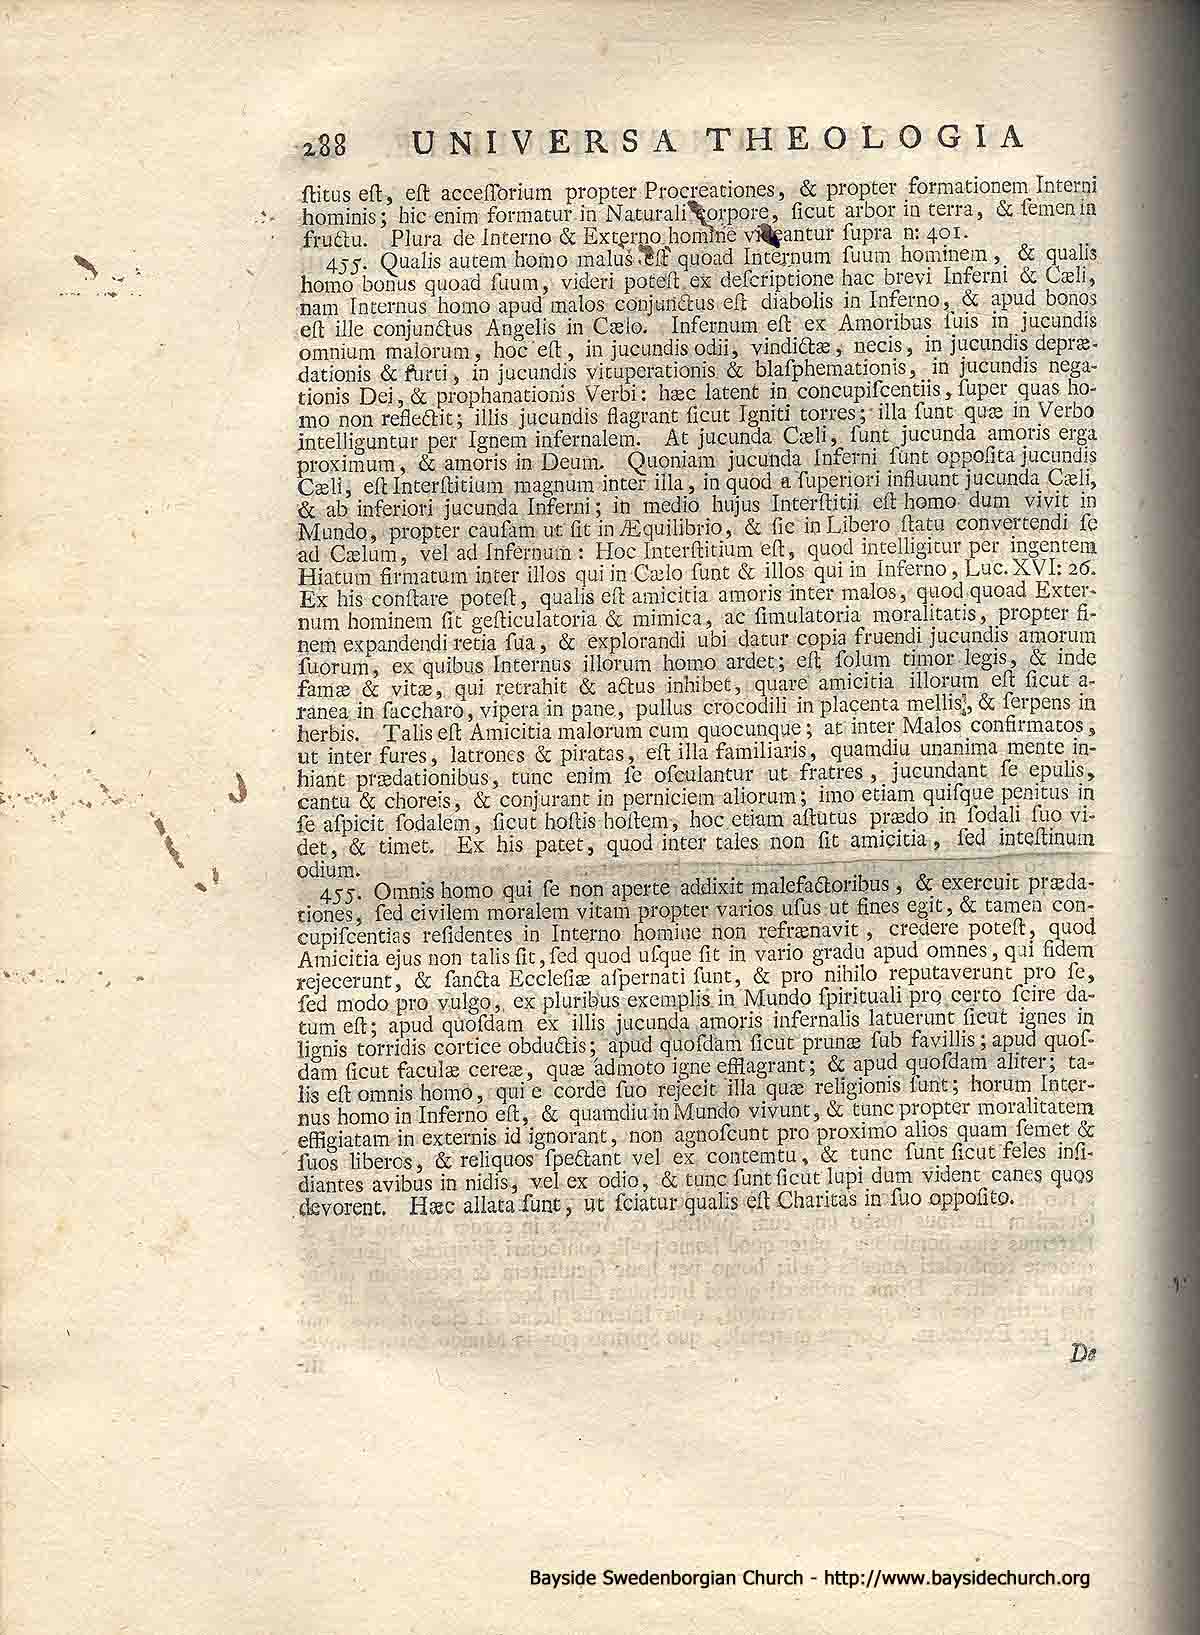 288 UNIVERSA THEOLOGIA
ſtitus eſt, eſt acceſſorium propter Procreationes, & propter formationem Interni
hominis; hic enim formatur in Naturali corpore, ſicut arbor in terra, & ſemen in
fructu. Plura de Interno & Externo homine videantur ſupra n: 401.
455. Qualis autem homo malus eſt quoad Internum ſuum hominem, & qualis
homo bonus quoad ſuum, videri poteſt ex deſcriptione hac brevi Inferni & Cæli,
nam Internus homo apud malos conjunctus eſt diabolis in Inferno, & apud bonos
eſt ille conjunctus Angelis in Cælo. Infernum eſt ex Amoribus ſuis in jucundis
omnium malorum, hoc eſt, in jucundis odii, vindictæ, necis, in jucundis depræ-
dationis & furti, in jucundis vituperationis & blaſphemationis, in jucundis nega-
tionis Dei, & prophanationis Verbi: hæc latent in concupiſcentiis, ſuper quas ho-
mo non reflectit; illis jucundis flagrant ſicut Igniti torres; illa ſunt quæ in Verbo
intelliguntur per Ignem infernalem. At jucunda Cæli, ſunt jucunda amoris erga
proximum, & amoris in Deum. Quoniam jucunda Inferni ſunt oppoſita jucundis
Cæli, eſt Interſtitium magnum inter illa, in quod a ſuperiori influunt jucunda Cæli,
& ab inferiori jucunda Inferni; in medio hujus Interſtitii eſt homo dum vivit in
Mundo, propter cauſam ut ſit in Æquilibrio, & ſic in Libero ſtatu convertendi ſe
ad Cælum, vel ad Infernum: Hoc Interſtitium eſt, quod intelligitur per ingentem
Hiatum firmatum inter illos qui in Cælo ſunt & illos qui in Inferno, Luc. XVI: 26.
Ex his conſtare poteſt, qualis eſt amicitia amoris inter malos, quod quoad Exter-
num hominem ſit geſticulatoria & mimica, ac ſimulatoria moralitatis, propter fi-
nem expandendi retia ſua, & explorandi ubi datur copia fruendi jucundis amorum
ſuorum, ex quibus Internus illorum homo ardet; eſt ſolum timor legis, & inde
famæ & vitæ, qui retrahit & actus inhibet, quare amicitia illorum eſt ſicut a-
ranea in ſaccharo, vipera in pane, pullus crocodili in placenta mellis, & ſerpens in
herbis. Talis eſt Amicitia malorum cum quocunque; at inter Malos confirmatos,
ut inter fures, latrones & piratas, eſt illa familiaris, quamdiu unanima mente in-
hiant prædationibus, tunc enim ſe oſculantur ut fratres, jucundant ſe epulis,
cantu & choreis, & conjurant in perniciem aliorum; imo etiam quiſque penitus in
ſe aſpicit ſodalem, ſicut hoſtis hoſtem, hoc etiam aſtutus prædo in ſodali ſuo vi-
det, & timet. Ex his patet, quod inter tales non ſit amicitia, ſed inteſtinum
odium.
455. Omnis homo qui ſe non aperte addixit malefactoribus, & exercuit præda-
tiones, ſed civilem moralem vitam propter varios uſus ut fines egit, & tamen con-
cupiſcentias reſidentes in Interno homine non refrænavit, credere poteſt, quod
Amicitia ejus non talis ſit, ſed quod uſque ſit in vario gradu apud omnes, qui fidem
rejecerunt, & ſancta Eccleſiæ aſpernati ſunt, & pro nihilo reputaverunt pro ſe,
ſed modo pro vulgo, ex pluribus exemplis in Mundo ſpirituali pro certo ſcire da-
tum eſt; apud quoſdam ex illis jucunda amoris infernalis latuerunt ſicut ignes in
lignis torridis cortice obductis; apud quoſdam ſicut prunæ ſub favillis; apud quoſ-
dam ſicut faculæ cereæ, quæ admoto igne efflagrant; & apud quoſdam aliter; ta-
lis eſt omnis homo, qui e corde ſuo rejecit illa quæ religionis ſunt; horum Inter-
nus homo in Inferno eſt, & quamdiu in Mundo vivunt, & tunc propter moralitatem
effigiatam in externis id ignorant, non agnoſcunt pro proximo alios quam ſemet &
ſuos liberos, & reliquos ſpectant vel ex contemtu, & tunc ſunt ſicut feles inſi-
diantes avibus in nidis, vel ex odio, & tunc ſunt ſicut lupi dum vident canes quos
devorent. Hæc allata ſunt, ut ſciatur qualis eſt Charitas in ſuo oppoſito.
De
Bayside Swedenborgian Church - http://www.baysidechurch.org